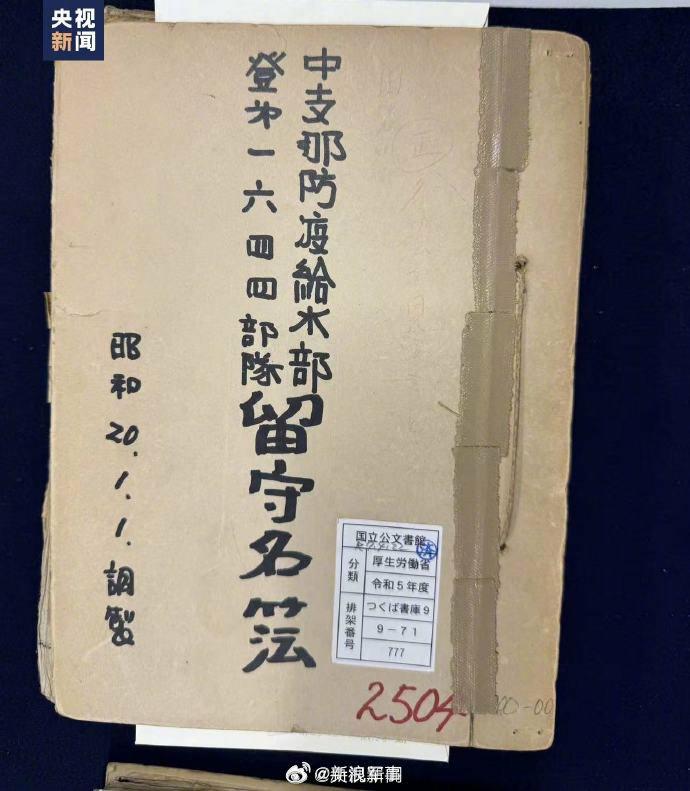 央视
新闻
中支那防疫給水部
登第一六四四部隊
留守名簿
昭和20.1.1.調製
国立公文書館
分類
厚生労働省
令和5年度
排架番号
つくば書庫9
9-71
777
2504
00-00
@新浪军事